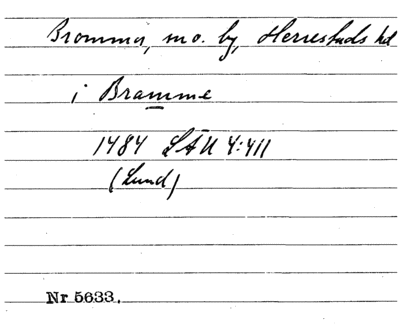 Bromma, sn o. by, Herrestads hd
i Bramme
1484 LÄU 4:411
(Lund)
Nr 5633.